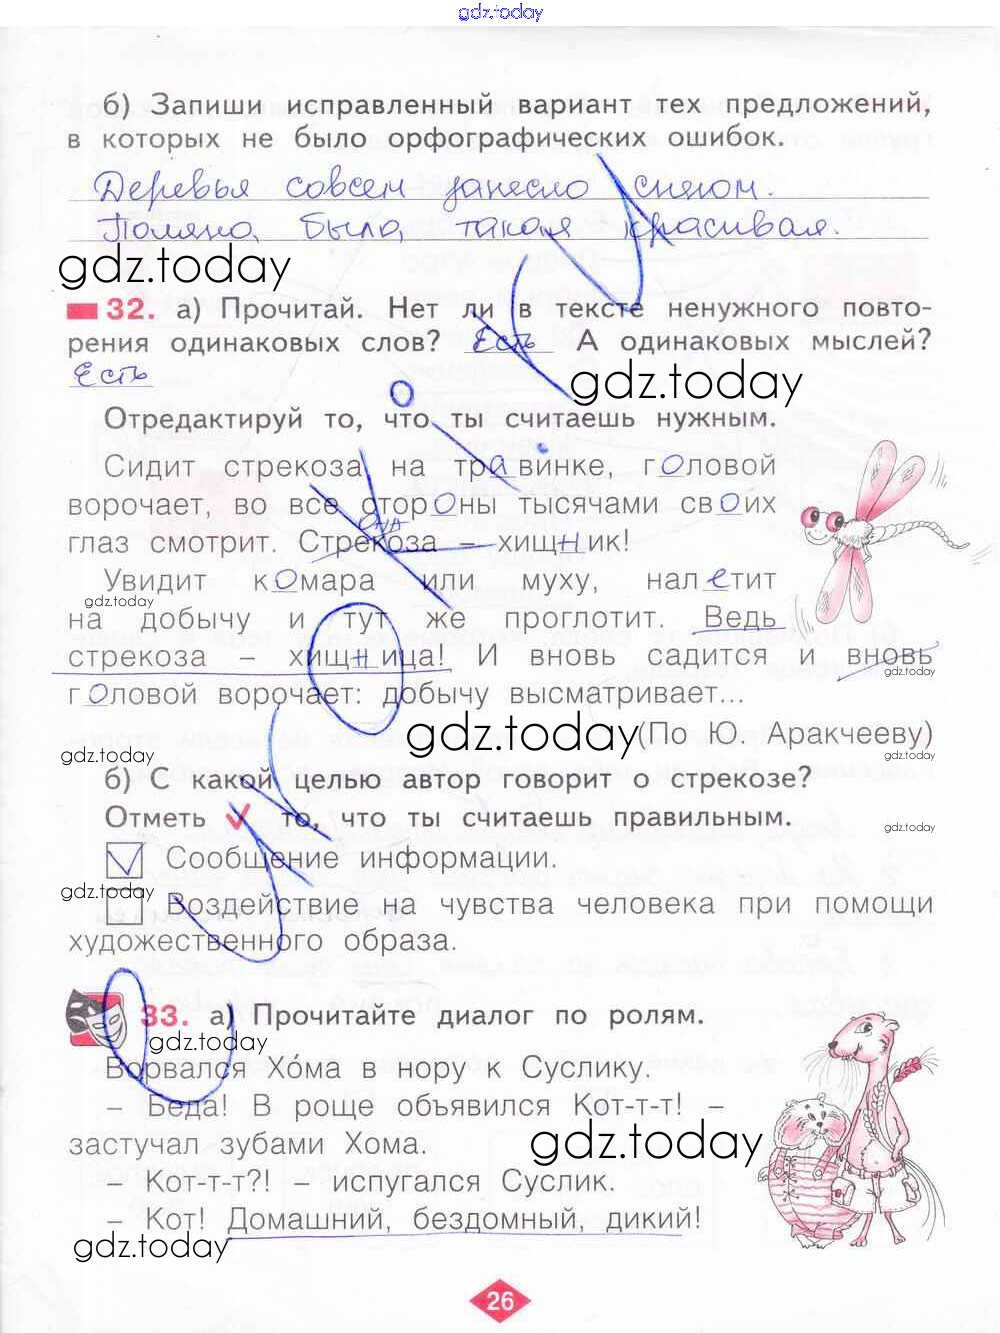 gdz.today
б) Запиши исправленный вариант тех предложений,
в которых не было орфографических ошибок.
Деревья совсем занесло снегом.
Поляна была такая красивая.
gdz.today
32. а) Прочитай. Нет ли в тексте ненужного повто-
рения одинаковых слов? Есть А одинаковых мыслей?
Есть
gdz.today
Отредактируй то, что ты считаешь нужным.
Сидит стрекоза на травинке, головой
ворочает, во все стороны тысячами своих
она
глаз смотрит. Стрекоза – хищник!
Увидит комара или муху, налетит
gdz.today
gdz.today
на добычу и тут же проглотит. Ведь
стрекоза – хищница! И вновь садится и вновь
gdz.today
головой ворочает: добычу высматривает...
gdz.today
(По Ю. Аракчееву)
gdz.today
б) С какой целью автор говорит о стрекозе?
Отметь ✓ то, что ты считаешь правильным.
gdz.today
Сообщение информации.
gdz.today
Воздействие на чувства человека при помощи
художественного образа.
33. а) Прочитайте диалог по ролям.
gdz.today
Ворвался Хо́ма в нору к Суслику.
– Беда! В роще объявился Кот-т-т! –
застучал зубами Хома.
gdz.today
– Кот-т-т?! – испугался Суслик.
– Кот! Домашний, бездомный, дикий!
gdz.today
26